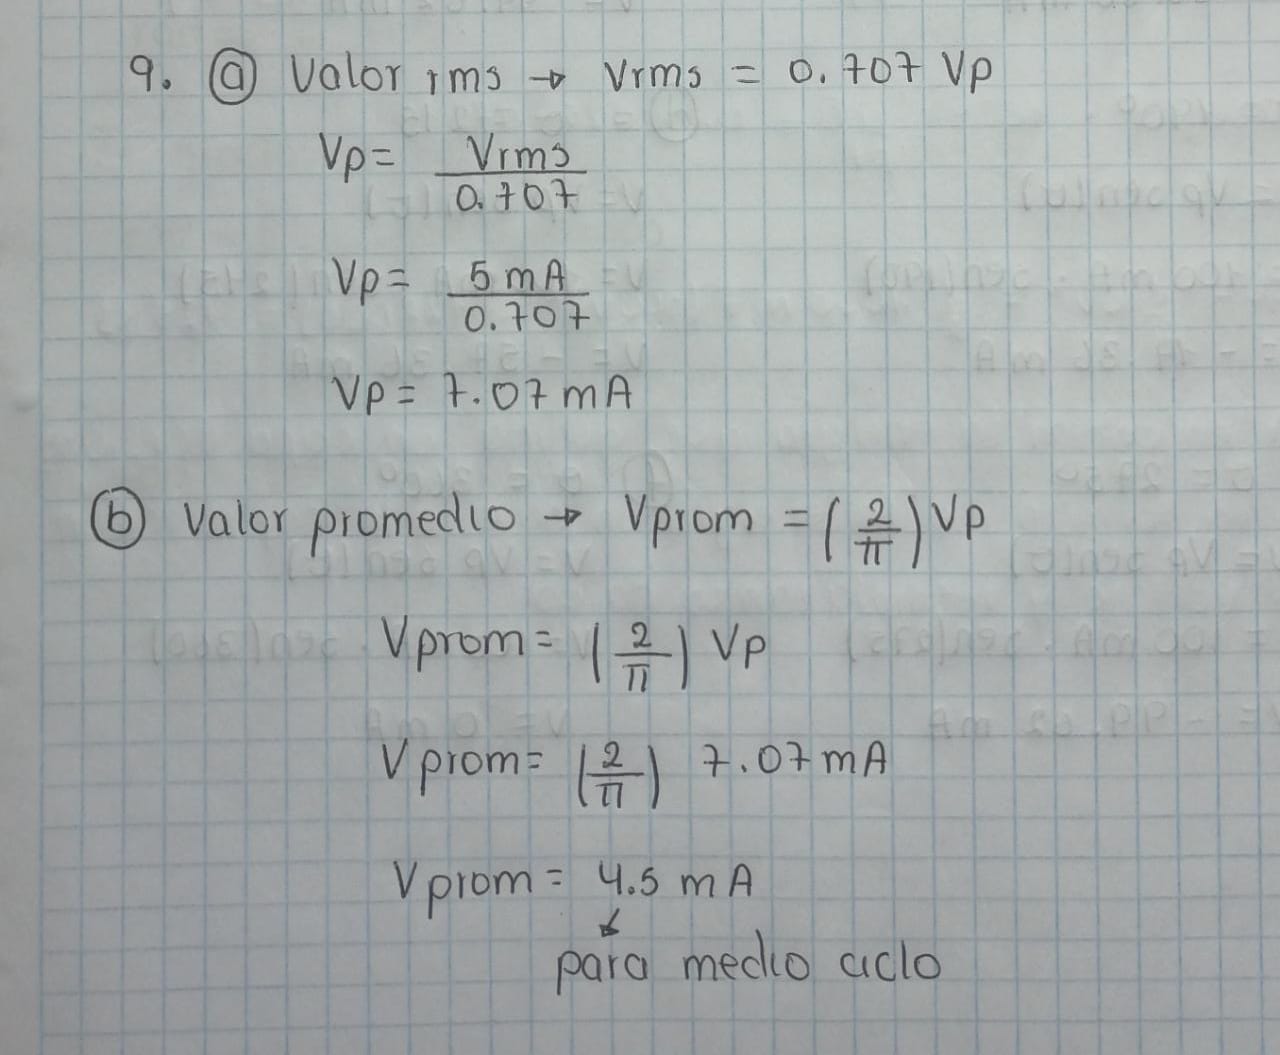 9. ⓐ Valor rms → Vrms = 0.707 Vp
Vp = Vrms / 0.707
Vp = 5 mA / 0.707
Vp = 7.07 mA
ⓑ Valor promedio → Vprom = (2/π) Vp
Vprom = (2/π) Vp
Vprom = (2/π) 7.07 mA
Vprom = 4.5 mA
para medio ciclo